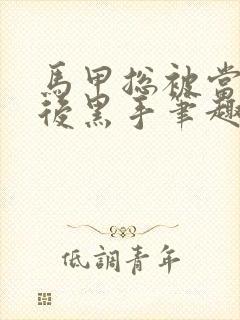 馬甲総被當
後黑手筆趣
低調青年